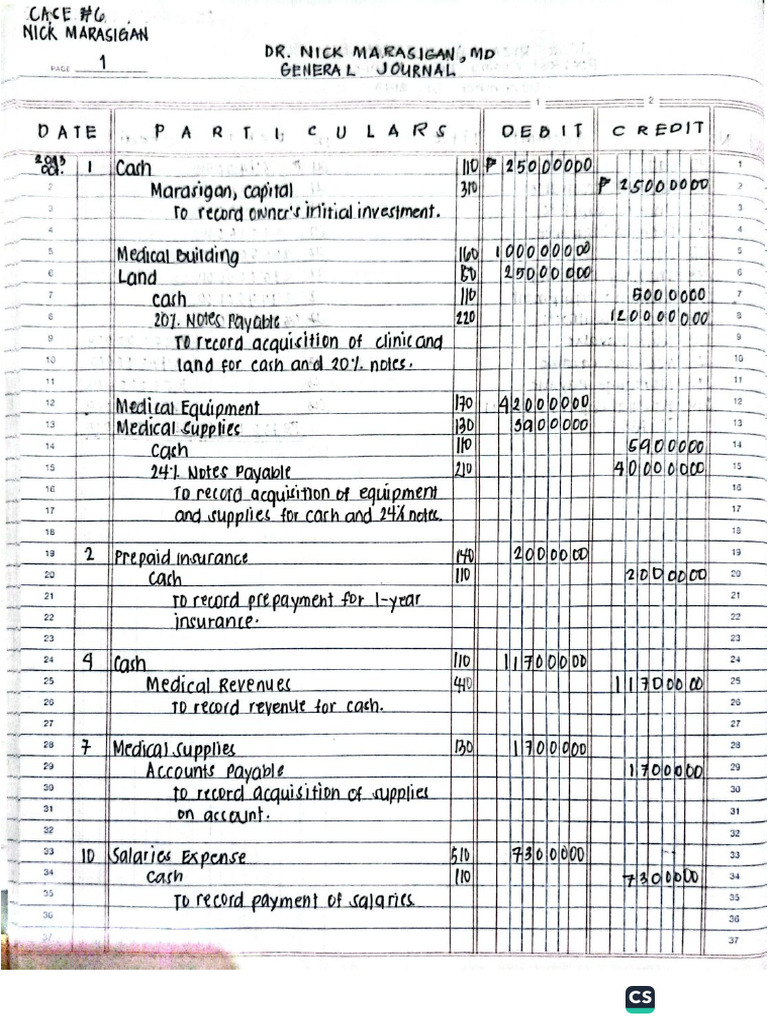 CACE #6
NICK MARASIGAN
PAGE 1
DR. NICK MARASIGAN, MD
GENERAL JOURNAL
1 2
DATE PARTICULARS DEBIT CREDIT
2013 oct. 1 Cash 110 ₱ 25000000 1
2 Marasigan, capital 310 ₱ 25000000 2
3 To record owner's initial investment. 3
4 4
5 Medical Building 160 100000000 5
6 Land 25000000 6
7 cash 110 5000000 7
8 20% Notes Payable 220 120000000 8
9 To record acquisition of clinic and 9
10 land for cash and 20% notes. 10
11 11
12 Medical Equipment 170 42000000 12
13 Medical Supplies 130 3900000 13
14 cash 110 5900000 14
15 24% Notes Payable 210 40000000 15
16 To record acquisition of equipment 16
17 and supplies for cash and 24% notes. 17
18 18
19 2 Prepaid insurance 140 2000000 19
20 cash 110 2000000 20
21 To record prepayment for 1-year 21
22 insurance. 22
23 23
24 4 Cash 110 11700000 24
25 Medical Revenues 410 11700000 25
26 To record revenue for cash. 26
27 27
28 7 Medical Supplies 130 1700000 28
29 Accounts Payable 1700000 29
30 To record acquisition of supplies 30
31 on account. 31
32 32
33 10 Salaries Expense 510 7300000 33
34 cash 110 7300000 34
35 To record payment of salaries 35
36 36
37 37
CS